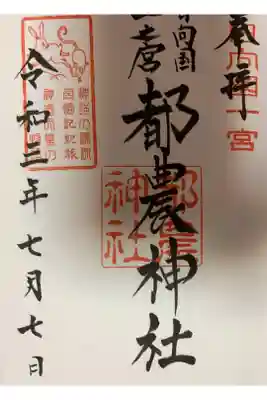 奉拝
日向国一宮
日向国
一宮
都農神社
都農神社
令和三年七月七日